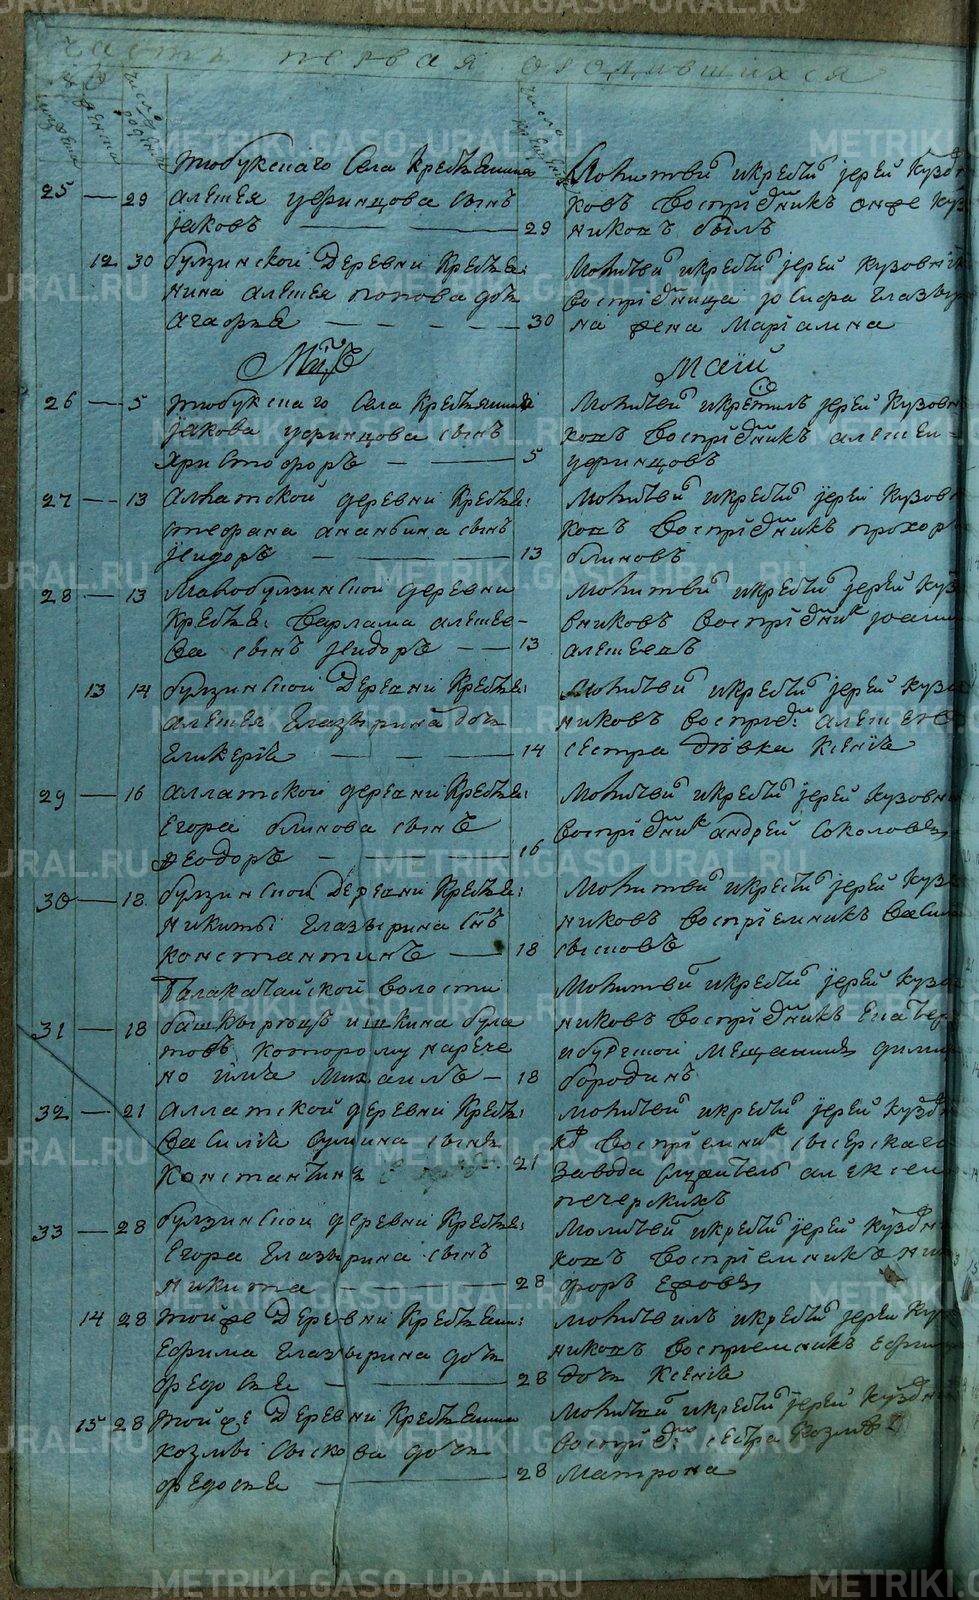 часть первая ородившихся
Тюбукскаго Села Крестьянина
25 — 29 алексея уфинцова сынъ
яковъ — 29
Молитвой икрестил іерей Кузов
ковъ воспріемникъ
никовъ былъ
12 30 булзинской Деревни Крестья:
нина алексея попова дочь
агафья — 30
Молитвой икрестил іерей кузовни
воспріемница глазыр
на жена Маріамна
Маій
26 — 5 тюбукскаго Села Крестьянина
іакова уфинцова сынъ
христофоръ — 5
Маій
Молитвой икрестилъ іерей Кузовн
ковъ воспріемникъ алексеи
уфинцовъ
27 — 13 деревни Крестья:
стефана ананьина сынъ
исидоръ — 13
Молитвой икрестил іерей Кузов
ковъ воспріемникъ прохоръ
блиновъ
28 — 13 Малобулзинской деревни
Крестья: Варлама алексее-
ва сынъ исидоръ — 13
Молитвой икрестил іерей Кузо
вниковъ воспріемник иоанн
алексеевъ
13 14 булзинской Деревни Крестья:
алексея глазырина дочь
гликерія — 14
Молитвой икрестил іерей Кузов
никовъ воспріе: алексеев
сестра девка Ксенія
29 — 16 аллатской деревни Крестья:
Егора блинова сынъ
феодоръ — 16
Молитвой икрестил іерей Кузовни
воспріемник андрей Соколовъ
30 — 18 булзинской Деревни Крестья:
никиты глазырина снъ
константинъ — 18
Молитвой икрестил іерей Кузов
никовъ воспріемникъ Васили
сысковъ
волости
31 — 18 башкырецъ ишкина була
товъ которому нарече
но имя Михаилъ — 18
Молитвой икрестил іерей Кузов
никовъ воспріемникъ Екатер
ибургской мещанинъ дими
бородинъ
32 — 21 аллатской деревни Кресть:
Василія сынъ
Константинъ 21
Молитвой икрестил іерей Кузовни
къ воспріемник сысерскаго
завода служитель алексеи
печерскихъ
33 — 28 булзинской деревни Крестья:
Егора глазырина сынъ
никита — 28
Молитвой икрестил іерей Кузовн
ковъ воспріемникъ ники
форъ
14 28 тойже Деревни Крестьяни:
Ефима глазырина дочь
федосья — 28
Молитвилъ икрестил іерей Кузо
никовъ воспріемникъ ефим
дочь Ксенія
15 28 тойже Деревни Крестьянина
козмы сыскова дочь
федосья — 28
Молитвой икрестил іерей Кузовни
воспріе: сестра Козмы
Матрона
METRIKI.GASO-URAL.RU